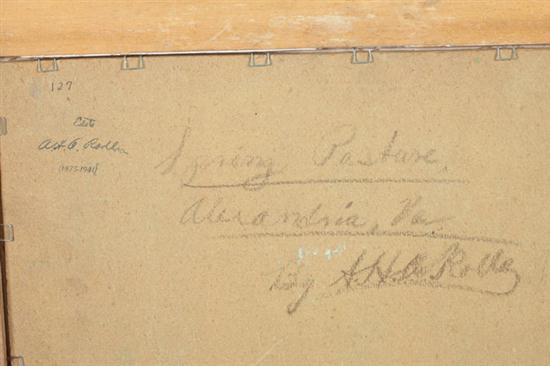 127
A.H.O. Rolle
(1875-1941)
Spring Pasture
Alexandria, Va.
By A.H.O. Rolle